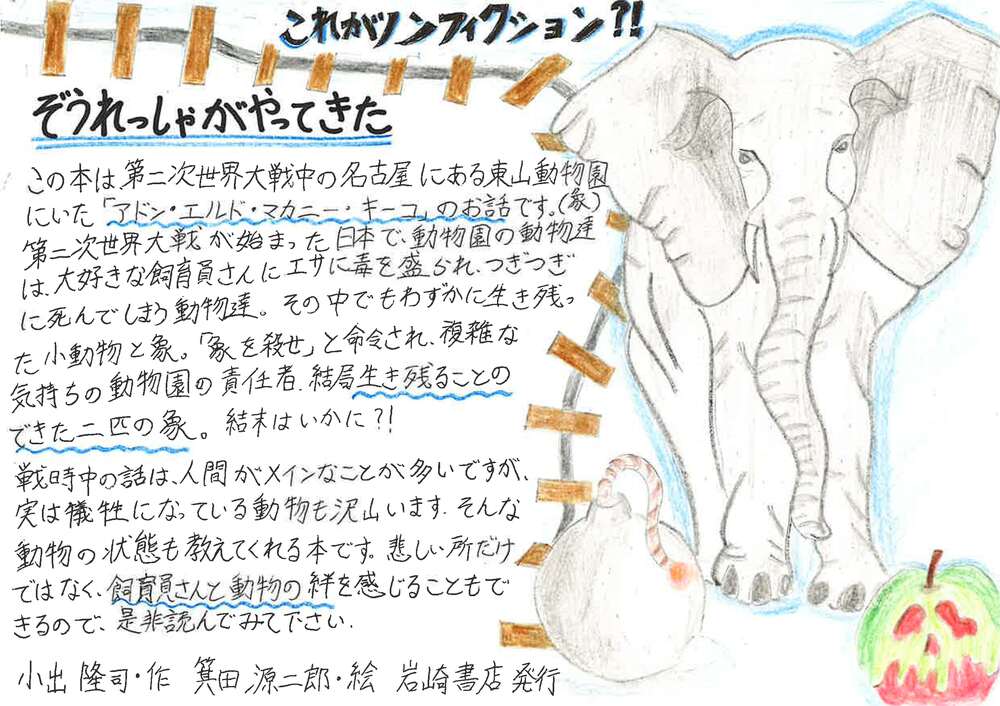 これがノンフィクション?!
ぞうれっしゃがやってきた
この本は第二次世界大戦中の名古屋にある東山動物園
にいた「アドン・エルド・マカニー・キーコ」のお話です。(象)
第二次世界大戦が始まった日本で、動物園の動物達
は、大好きな飼育員さんにエサに毒を盛られ、つぎつぎ
に死んでしまう動物達。その中でもわずかに生き残っ
た小動物と象。「象を殺せ」と命令され、複雑な
気持ちの動物園の責任者、結局生き残ることの
できた二匹の象。結末はいかに?!
戦時中の話は、人間がメインなことが多いですが、
実は犠牲になっている動物も沢山います。そんな
動物の状態も教えてくれる本です。悲しい所だけ
ではなく、飼育員さんと動物の絆を感じることもで
きるので、是非読んでみて下さい.
小出隆司・作 箕田源二郎・絵 岩崎書店発行